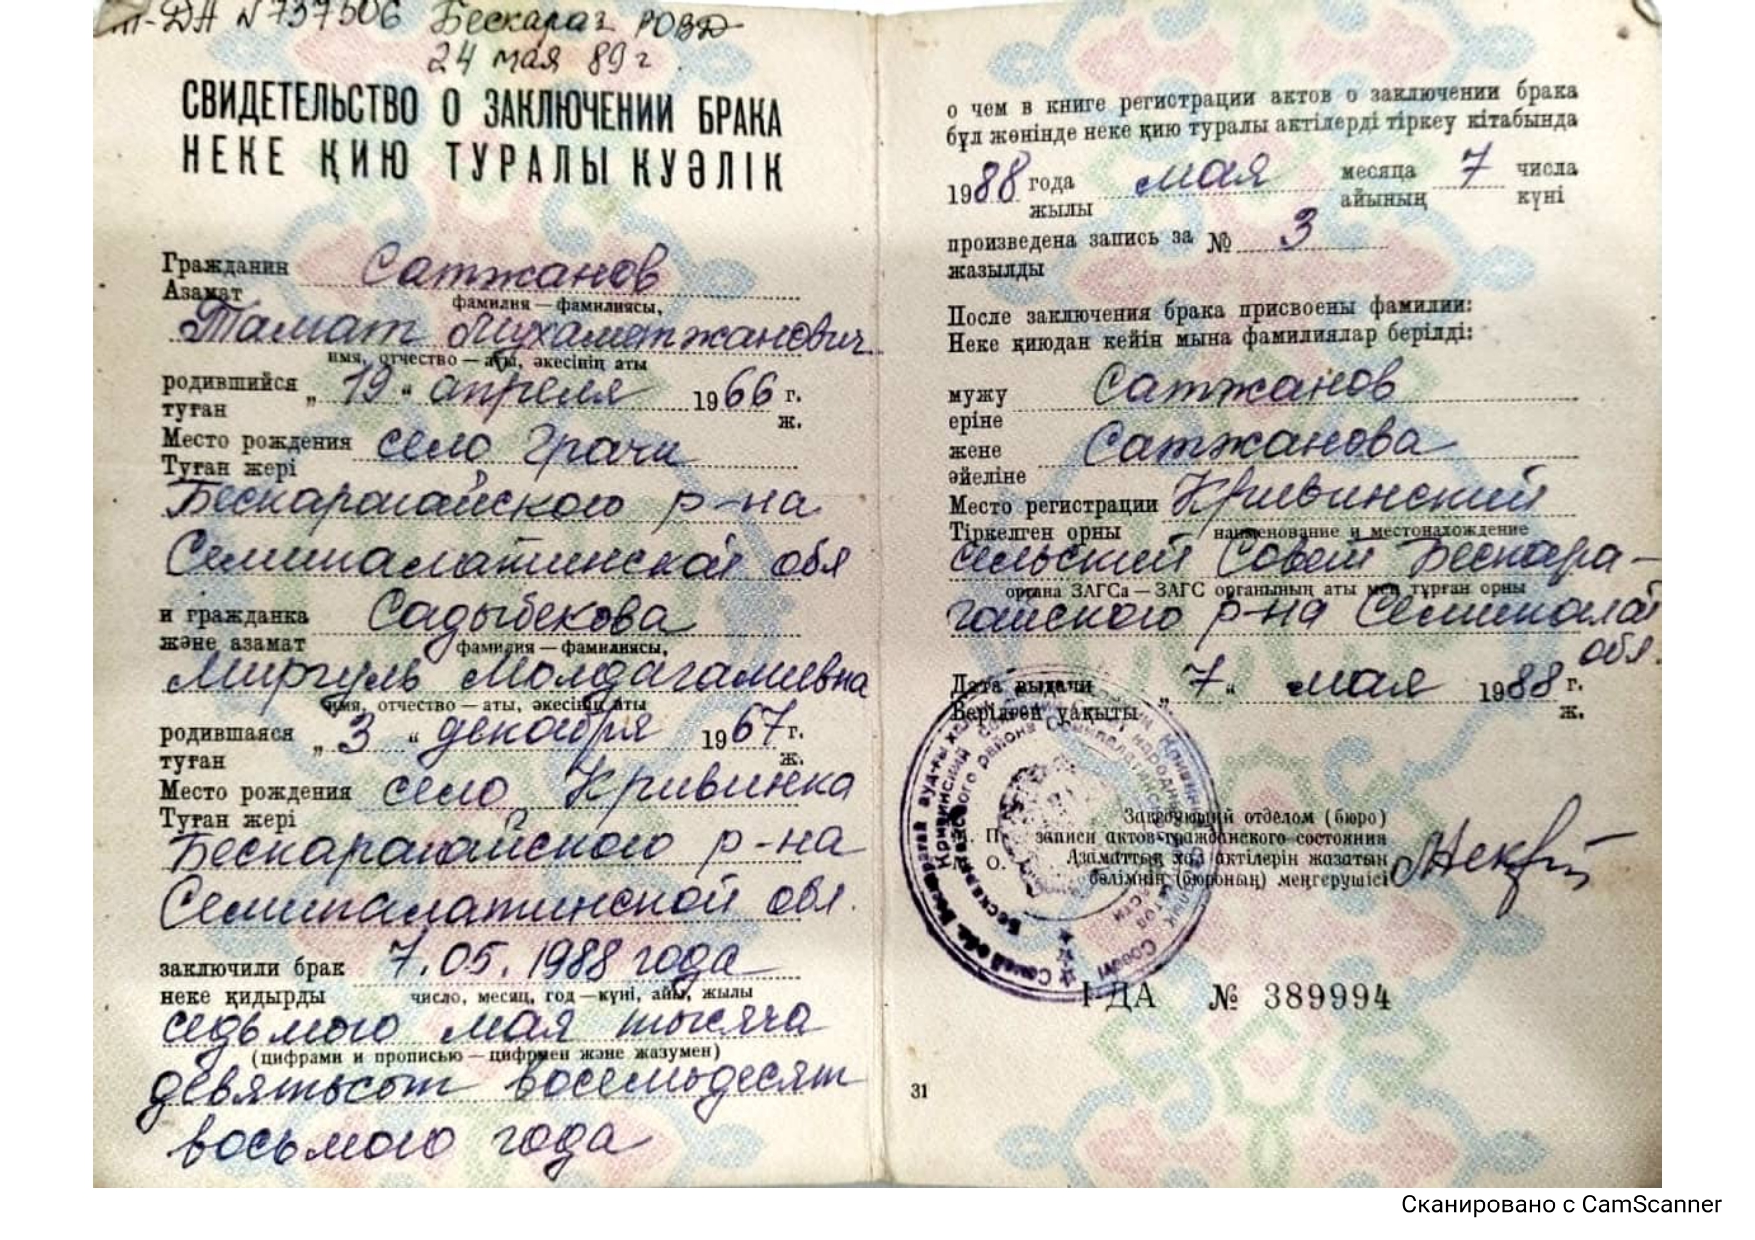 -ДА N 737506 Бескараг РОВД
24 мая 89 г.
СВИДЕТЕЛЬСТВО О ЗАКЛЮЧЕНИИ БРАКА
НЕКЕ ҚИЮ ТУРАЛЫ КУӘЛІК
Гражданин Сатжанов
Азамат
фамилия — фамилиясы,
Тамат Мухаметжанович
имя, отчество — аты, әкесінің аты
родившийся „ 19 “ апреля 1966 г.
туған ж.
Место рождения село Грачи
Туған жері
Бескарагайского р-на
Семипалатинской обл
и гражданка Садыбекова
және азамат
фамилия — фамилиясы,
Миргуль Молдагалиевна
имя, отчество — аты, әкесінің аты
родившаяся „ 3 “ декабря 1967 г.
туған ж.
Место рождения село Кривинка
Туған жері
Бескарагайского р-на
Семипалатинской обл.
заключили брак 7.05.1988 года
неке қидырды число, месяц, год — күні, айы, жылы
седьмого мая тысяча
(цифрами и прописью — цифрмен және жазумен)
девятьсот восемьдесят
восьмого года
о чем в книге регистрации актов о заключении брака
бұл жөнінде неке қию туралы актілерді тіркеу кітабында
1988 года мая месяца 7 числа
жылы айының күні
произведена запись за № 3
жазылды
После заключения брака присвоены фамилии:
Неке қиюдан кейін мына фамилиялар берілді:
мужу Сатжанов
еріне
жене Сатжанова
әйеліне
Место регистрации Кривинский
Тіркелген орны наименование и местонахождение
сельский Совет Бескара-
органа ЗАГСа — ЗАГС органының аты мен тұрған орны
гайского р-на Семипалат
обл.
Дата выдачи „ 7 “ мая 1988 г.
Берілген уақыты ж.
Заведующий отделом (бюро)
П. записи актов гражданского состояния
О. Азаматтық хал актілерін жазатын
бөлімнің (бюроның) меңгерушісі
I-ДА № 389994
31
Сканировано с CamScanner